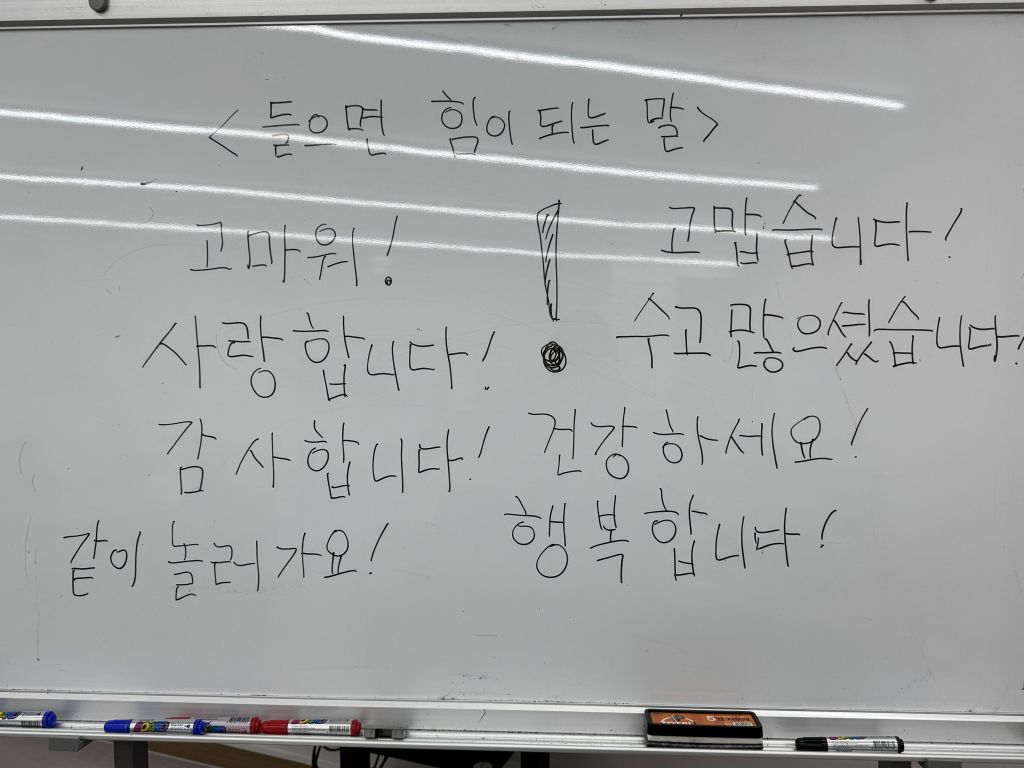 <들으면 힘이 되는 말>
고마워!
고맙습니다!
사랑합니다!
수고 많으셨습니다!
감사합니다!
건강하세요!
같이 놀러가요!
행복합니다!